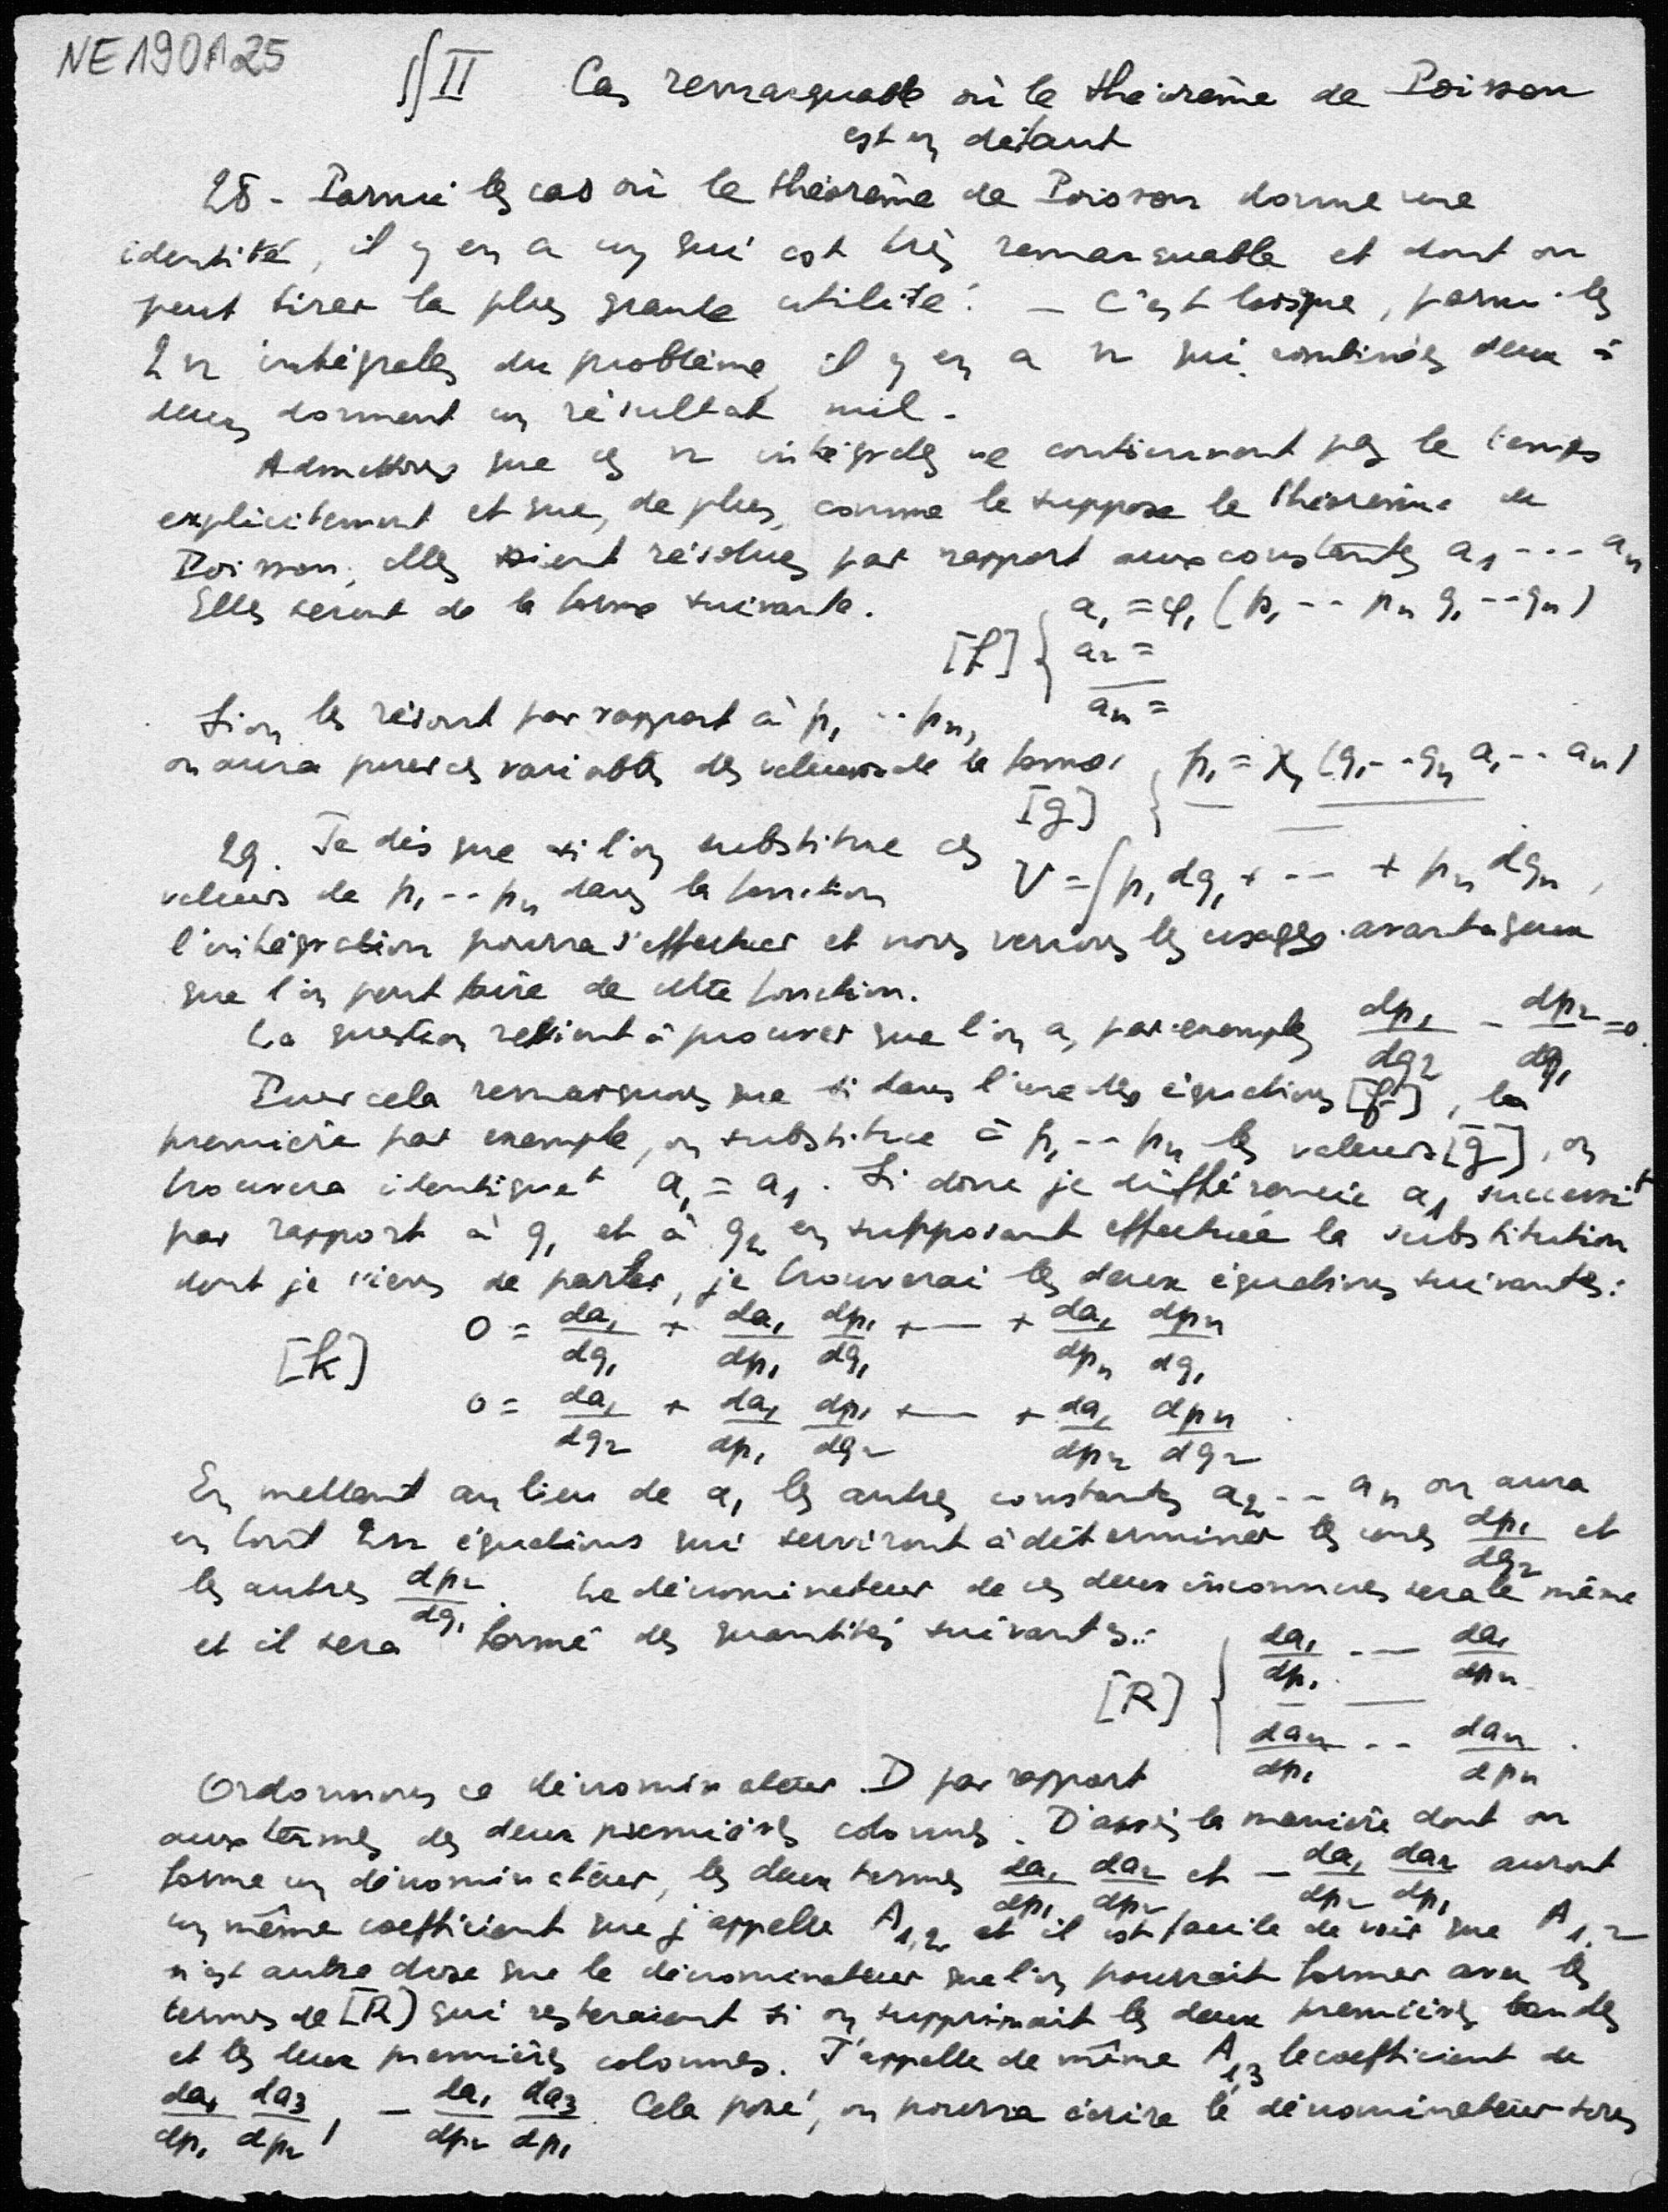 NE190A25
§ II Cas remarquable où le théorème de Poisson
est en défaut
28 - Parmi les cas où le théorème de Poisson donne une
identité, il y en a un qui est très remarquable et dont on
peut tirer la plus grande utilité. — C'est lorsque, parmi les
2n intégrales du problème, il y en a n qui combinées deux à
deux donnent un résultat nul.
Admettons que ces n intégrales ne contiennent pas le temps
explicitement et que, de plus, comme le suppose le théorème de
Poisson, elles soient résolues par rapport aux constantes a₁ --- aₙ
Elles seront de la forme suivante. a₁ = φ₁ (p₁ -- pₙ q₁ -- qₙ)
[f] { a₂ =
aₙ =
Si on les résout par rapport à p₁ -- pₙ,
on aura pour ces variables des valeurs de la forme { p₁ = χ₁ (q₁ -- qₙ a₁ -- aₙ)
[g]
29. Je dis que si l'on substitue ces
valeurs de p₁ -- pₙ dans la fonction V = ∫ p₁ dq₁ + --- + pₙ dqₙ,
l'intégration pourra s'effectuer et nous verrons les usages avantageux
que l'on peut faire de cette fonction.
La question revient à prouver que l'on a, par exemple, dp₁/dq₂ - dp₂/dq₁ = 0.
Pour cela remarquons que si dans l'une des équations [f], la
première par exemple, on substitue à p₁ -- pₙ les valeurs [g], on
trouvera identiquet a₁ = a₁. Si donc je différencie a₁ successit
par rapport à q₁ et à q₂ en supposant effectuée la substitution
dont je viens de parler, je trouverai les deux équations suivantes:
0 = da₁/dq₁ + da₁/dp₁ dp₁/dq₁ + — + da₁/dpₙ dpₙ/dq₁
[k]
0 = da₁/dq₂ + da₁/dp₁ dp₁/dq₂ + — + da₁/dpₙ dpₙ/dq₂
En mettant au lieu de a₁ les autres constantes a₂ -- aₙ on aura
en tout 2n équations qui serviront à déterminer les unes dp₁/dq₂ et
les autres dp₂/dq₁. Le dénominateur de ces deux inconnues sera le même
et il sera formé des quantités suivantes:
[R] { da₁/dp₁ -- — da₁/dpₙ
daₙ/dp₁ -- daₙ/dpₙ.
Ordonnons ce dénominateur D par rapport
aux termes des deux premières colonnes. D'après la manière dont on
forme un dénominateur, les deux termes da₁/dp₁ da₂/dp₂ et - da₁/dp₂ da₂/dp₁ auront
un même coefficient que j'appelle A₁,₂ et il est facile de voir que A₁,₂
n'est autre chose que le dénominateur que l'on pourrait former avec les
termes de [R] qui resteraient si on supprimait les deux premières bandes
et les deux premières colonnes. J'appelle de même A₁,₃ le coefficient de
da₁/dp₁ da₃/dp₂, - da₁/dp₂ da₃/dp₁. Cela posé, on pourra écrire le dénominateur sous